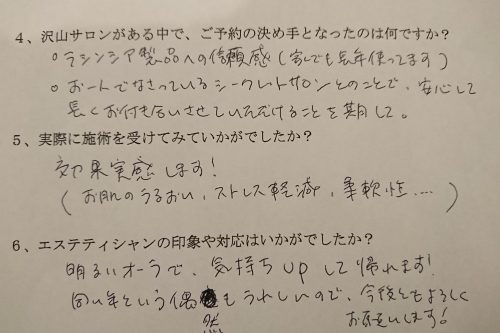 4、沢山サロンがある中で、ご予約の決め手となったのは何ですか？
○ラシンシア製品への信頼感（家でも長年使ってます）
○お一人でなさっているシークレットサロンとのことで、安心して
長くお付き合いさせていただけることを期して。
5、実際に施術を受けてみていかがでしたか？
効果実感します！
（お肌のうるおい、ストレス軽減、柔軟性....）
6、エステティシャンの印象や対応はいかがでしたか？
明るいオーラで、気持ちupして帰れます！
同い年という偶然もうれしいので、今後ともよろしく
お願いします！